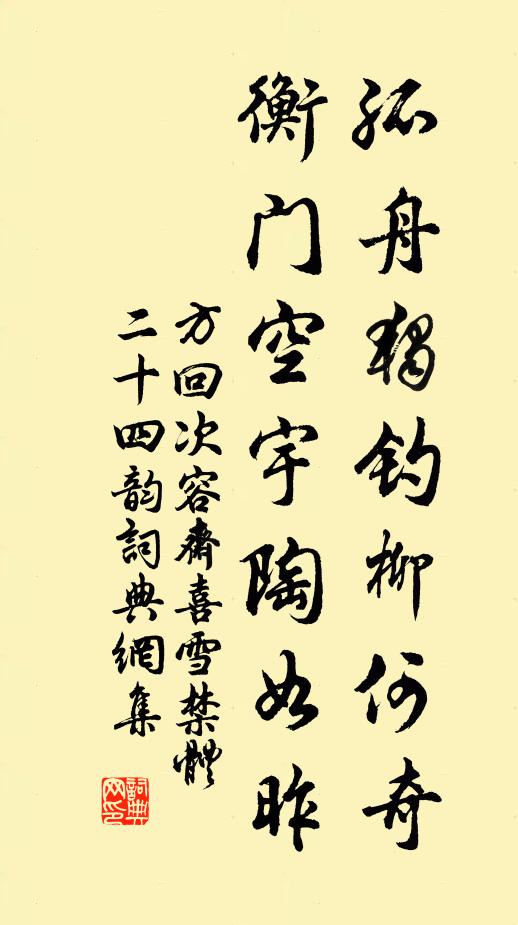 孤舟獨钓柳何奇
衡门空宇陶如昨
方回次容齋喜雪禁體
二十四韵詞典網集
詞典网印